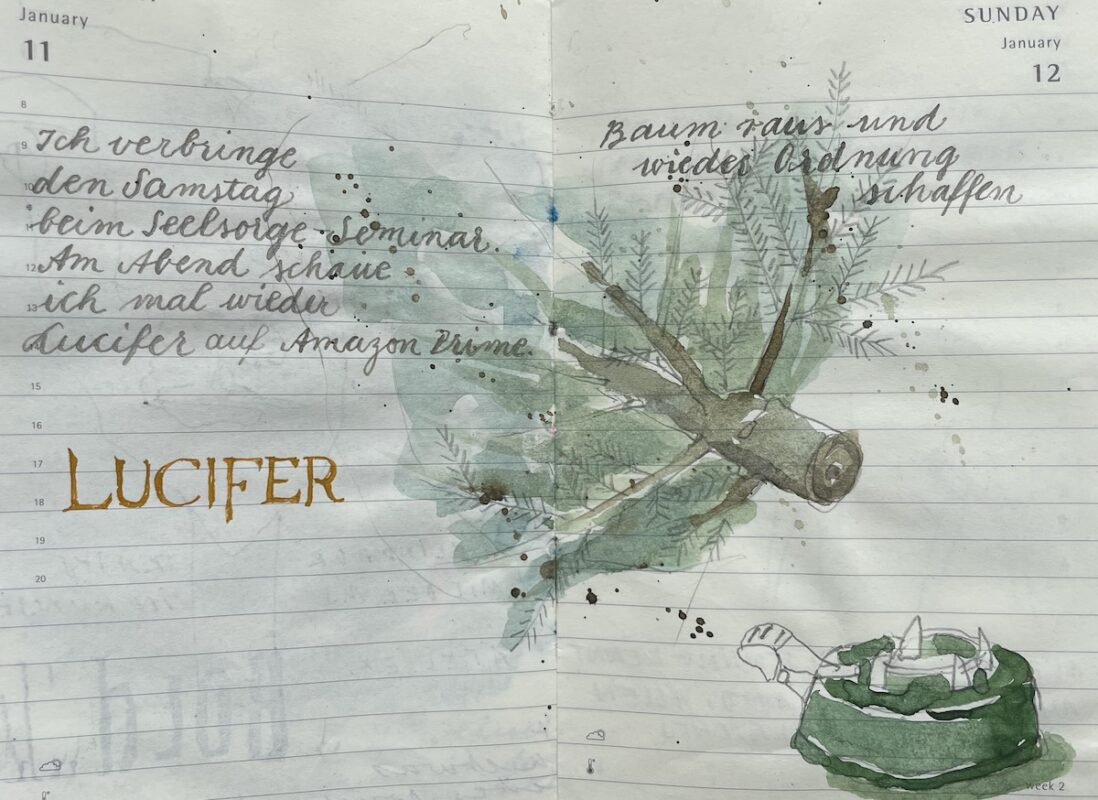 January
11
8
9
Ich verbringe
10
den Samstag
beim Seelsorge-Seminar.
12
Am Abend schaue
13
ich mal wieder
Lucifer auf Amazon Prime.
15
16
17
LUCIFER
18
19
20
SUNDAY
January
12
Baum raus und
wieder Ordnung
schaffen
week 2